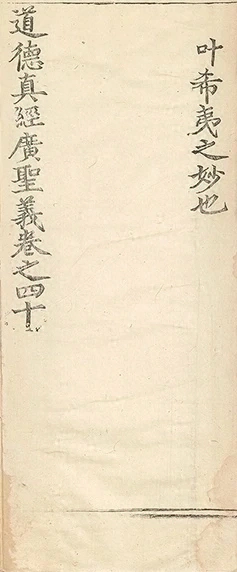 叶希夷之妙也
道德真經廣聖義卷之四十